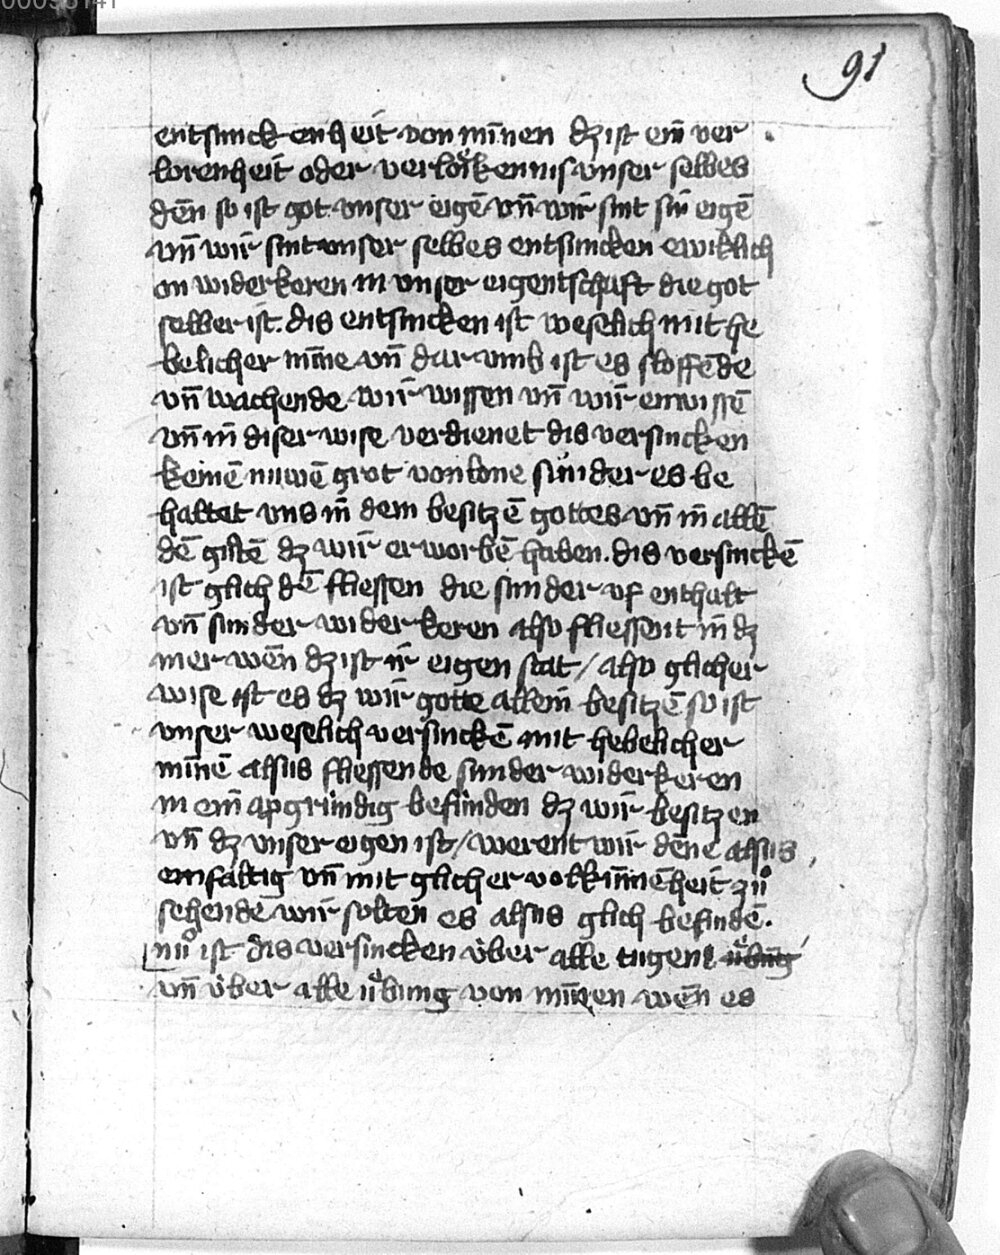 91
entsinckenheit von minnen dz ist ein ver
lorenheit oder verloͤikennis vnser selbes
den̄ so ist got vnser eigē vn̄ wir sint sin eigē
vn̄ wir sint vnser selbes entsuncken ewiklich
on widerkeren in vnser eigentschaft die got
selber ist. dis entsincken ist weselich mit he
belicher minne vn̄ dar vmb ist es sloffēde
vn̄ wachende wir wissen vn̄ wir enwissē
vn̄ in diser wise verdienet dis versincken
keinē nuwē grot von lone sunder es be
haltet vns in dem besitzē gottes vn̄ in allē
dē gūtē dz wir erworbē haben. dis versinckē
ist glich dē fliessen die sunder vf enthalt
vn̄ sunder widerkeren also fliessent in dz
mer wen̄ dz ist ir eigen stat / also glicher
wise ist es dz wir gotte allein besitzē so ist
vnser weselich versinckē mit hebelicher
minnē alsus fliessende sunder widerkeren
in ein apgrúndig befinden dz wir besitzen
vn̄ dz vnser eigen ist / werent wir dene alsus
einfaltig vn̄ mit glicher volkumēheit zuͦ
sehende wir solten es alsus glich befindē.
nuͦ ist dis versincken über alle tugent
vn̄ über alle uͤbung von minnen wen̄ es